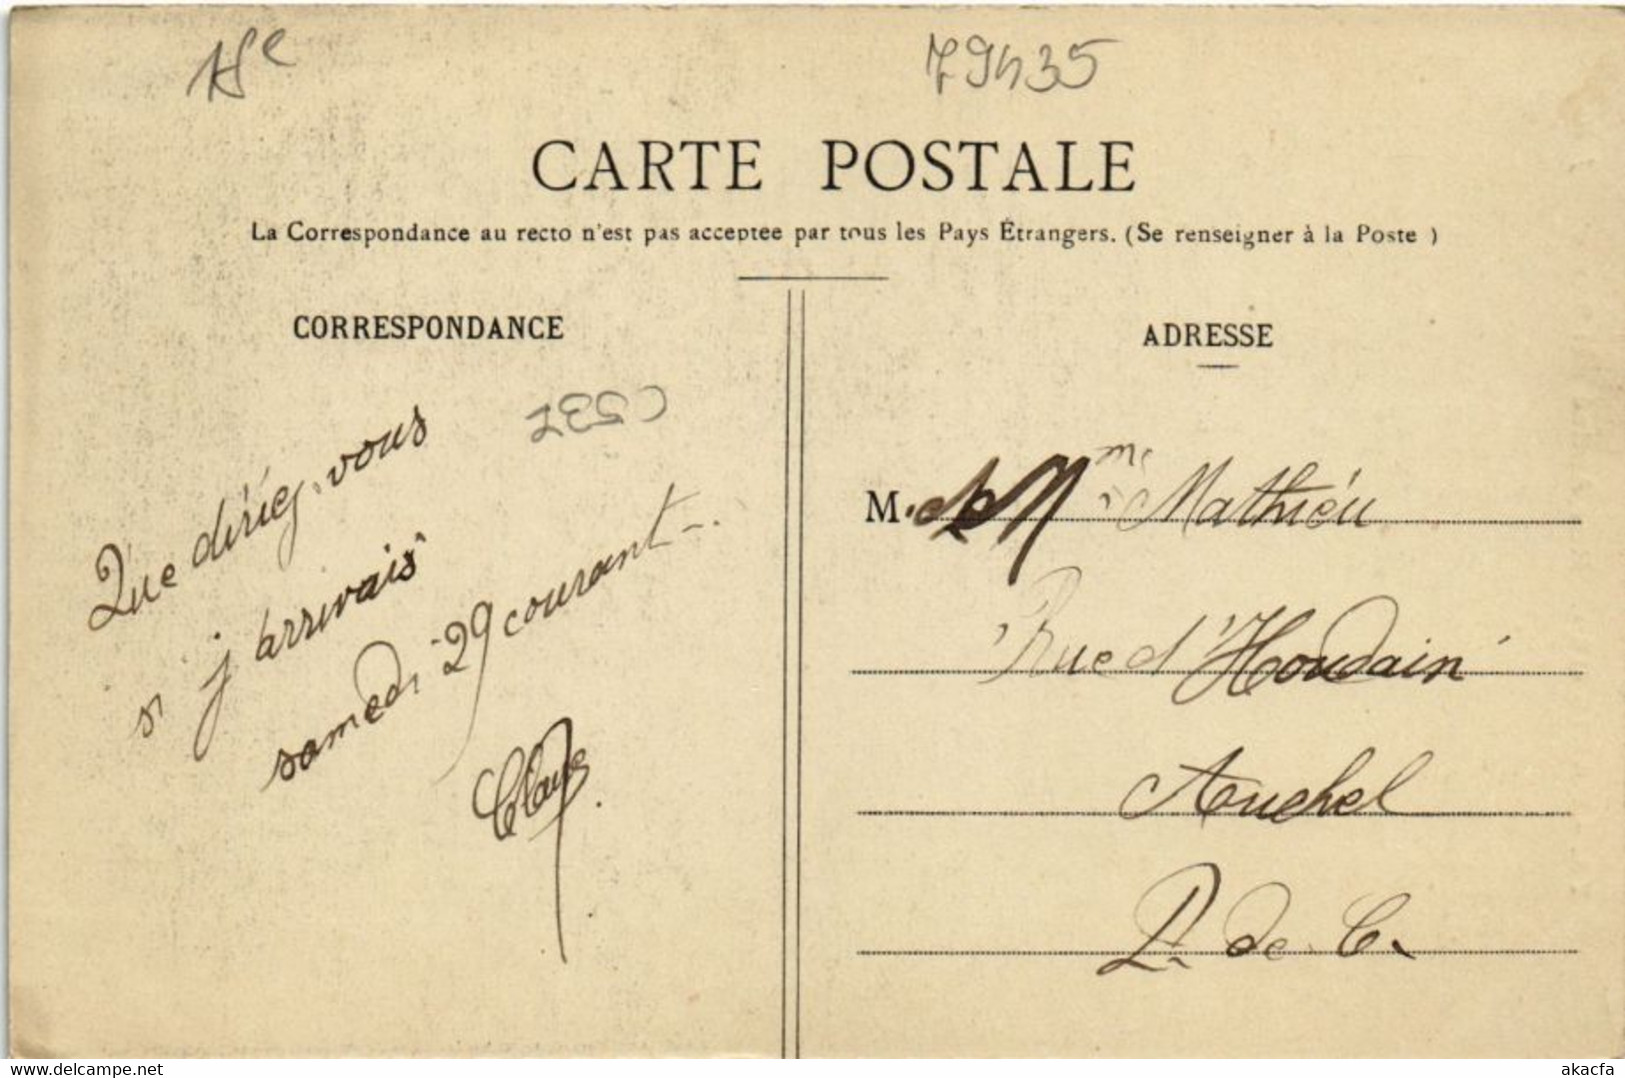 79435
CARTE POSTALE
La Correspondance au recto n'est pas acceptee par tous les Pays Étrangers. (Se renseigner à la Poste )
CORRESPONDANCE
Que diriez-vous
si j'arrivais
samedi 29 courant.
ADRESSE
M. et Mme Mathieu
Rue d'Houdain
Auchel
P. de C.
www.delcampe.net
akacfa